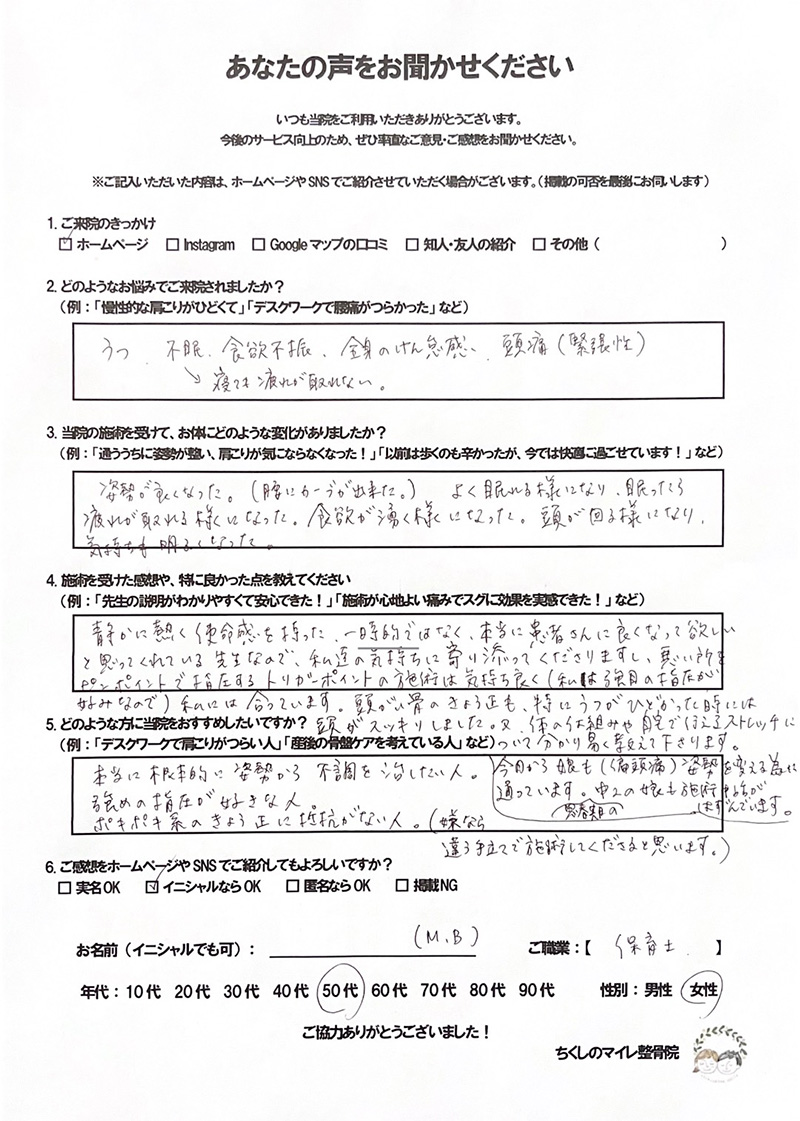 あなたの声をお聞かせください
いつも当院をご利用いただきありがとうございます。
今後のサービス向上のため、ぜひ率直なご意見・ご感想をお聞かせください。
※ご記入いただいた内容は、ホームページやSNSでご紹介させていただく場合がございます。（掲載の可否を最後にお伺いします）
1. ご来院のきっかけ
☑ ホームページ □ Instagram □ Googleマップの口コミ □ 知人・友人の紹介 □ その他（ ）
2. どのようなお悩みでご来院されましたか？
（例：「慢性的な肩こりがひどくて」「デスクワークで腰痛がつらかった」など）
うつ、不眠、食欲不振、全身のけん怠感、頭痛（緊張性）
↘ 寝ても疲れが取れない。
3. 当院の施術を受けて、お体にどのような変化がありましたか？
（例：「通ううちに姿勢が整い、肩こりが気にならなくなった！」「以前は歩くのも辛かったが、今では快適に過ごせています！」など）
姿勢が良くなった。（腰にカーブが出来た。） よく眠れる様になり、眠ったら
疲れが取れる様になった。食欲が湧く様になった。頭が回る様になり、
気持ちも明るくなった。
4. 施術を受けた感想や、特に良かった点を教えてください
（例：「先生の説明がわかりやすくて安心できた！」「施術が心地よい痛みでスグに効果を実感できた！」など）
静かに熱く使命感を持った、一時的ではなく、本当に患者さんに良くなって欲しい
と思ってくれている先生なので、私達の気持ちに寄り添ってくださりますし、悪い所を
ピンポイントで指圧するトリガーポイントの施術は気持ち良く（私は強目の指圧が
好みなので）私には合っています。頭がい骨のきょう正も、特にうつがひどかった時には
頭がスッキリしました。又、体の仕組みや自宅で行えるストレッチに
ついて分かり易く教えて下さります。
5. どのような方に当院をおすすめしたいですか？
（例：「デスクワークで肩こりがつらい人」「産後の骨盤ケアを考えている人」など）
本当に根本的に姿勢から不調を治したい人。
強めの指圧が好きな人。
ポキポキ系のきょう正に抵抗がない人。（嫌なら
違う手立てで施術してくださると思います。）
今月から娘も（偏頭痛）姿勢を変える為に
通っています。中2の娘も施術中話が
思春期の はずんでいます。
6. ご感想をホームページやSNSでご紹介してもよろしいですか？
□ 実名OK ☑ イニシャルならOK □ 匿名ならOK □ 掲載NG
お名前（イニシャルでも可）： （M.B） ご職業：【 保育士 】
年代： 10代 20代 30代 40代 50代 60代 70代 80代 90代 性別： 男性 女性
ご協力ありがとうございました！
ちくしのマイレ整骨院